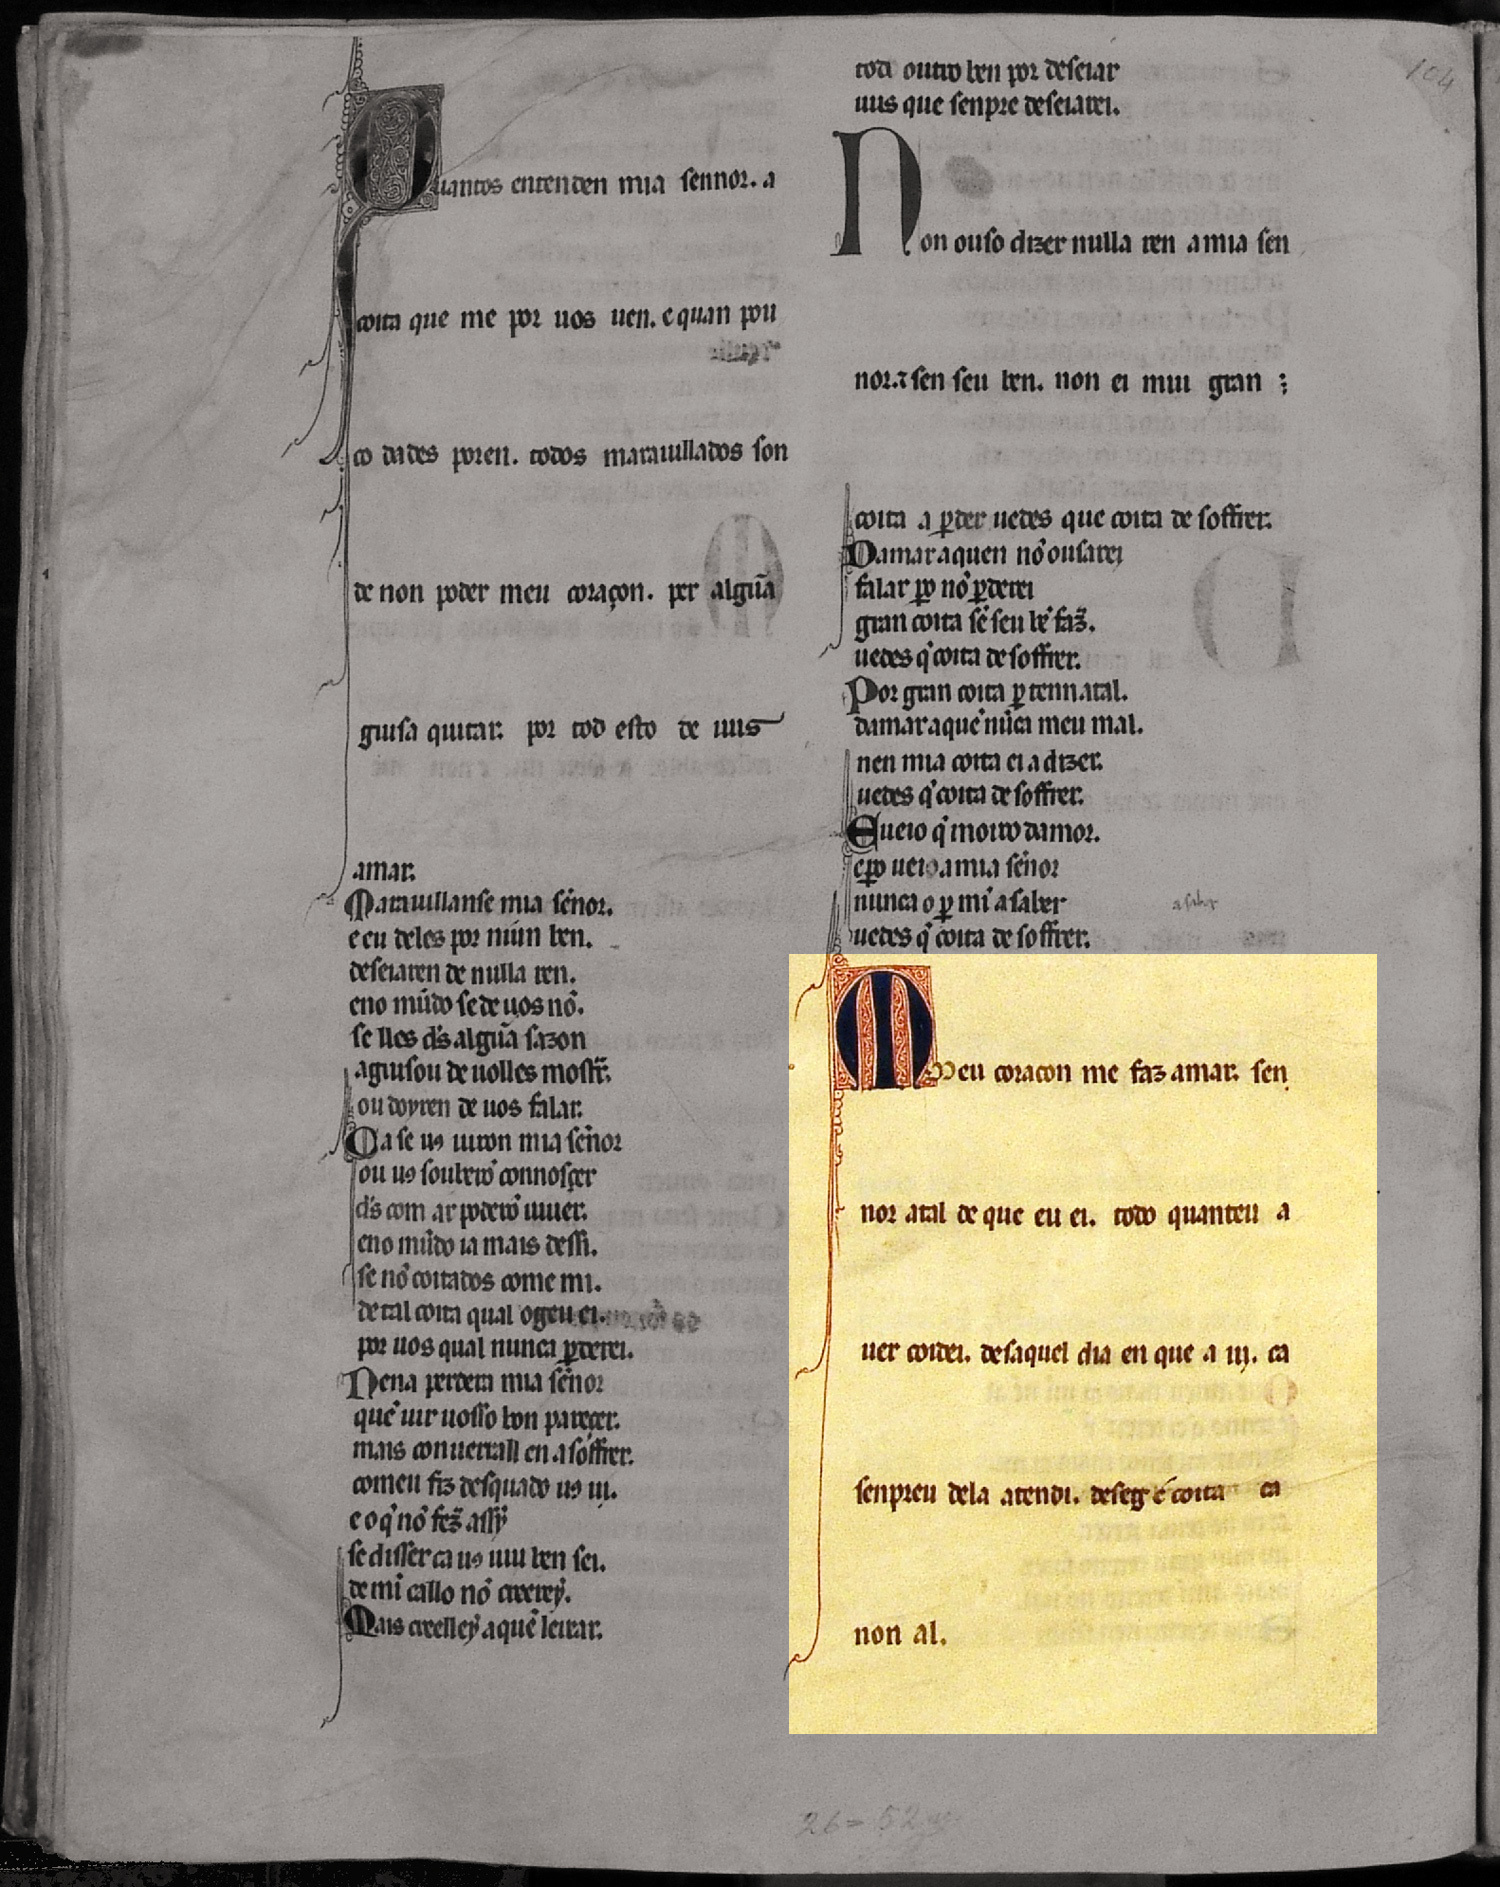 Quantos entenden mia sennor. a
coita que me por uos uen. e quan pou
co dades poren. todos marauillados son
de non poder meu coraçon. per algũa
guisa quitar. por tod esto de uus
amar.
Marauillanse mia sẽnor.
e eu deles por niun ben.
deseiaren de nulla ren.
eno mũdo se de uos nõ.
se lles d's algũa sazon
aguisou de uolles mostr̃.
ou doyren de uos falar.
Ca se uꝯ uiron mia señor
ou uꝯ souberõ connosçer
d's com ar poderõ uiuer.
eno mũdo ia mais dessi.
se nõ coitados come mi.
de tal coita qual ogeu ei.
por uos qual nunca ꝑderei.
Nena perdera mia señor
quẽ uir uosso bon pareçer.
mais conuerrall en a soffrer.
comeu fiz desquãdo uꝯ ui.
e o q̃ nõ fez̃ assy
se disser ca uꝯ uiu ben sei.
de mi callo nõ creerey.
Mais creelley a quẽ leixar.
tod outro ben por deseiar
uus que senpre deseiarei.
Non ouso dizer nulla ren a mia sen
nor. ⁊ sen seu ben. non ei mui gran
coita a ꝑder uedes que coita de soffrer.
Damar a quen nõ ousarei
falar ꝑo nõ ꝑderei
gran coita sẽ seu bẽ faz̃.
uedes q̃ coita de soffrer.
Por gran coita ꝑ tenn atal.
damar a quẽ nũca meu mal.
nen mia coita ei a dizer.
uedes q̃ coita de soffrer.
E ueio q̃ moiro damor.
e ꝑo ueio a mia señor
nunca o ꝑ mĩ a saber
a saber
uedes q̃ coita de soffrer.
Meu coracon me faz amar. sen
nor atal de que eu ei. todo quanteu a
uer coidei. desaquel dia en que a ui. ca
senpreu dela atendi. deseg̃ ⁊ coita ca
non al.
104
26 = 52